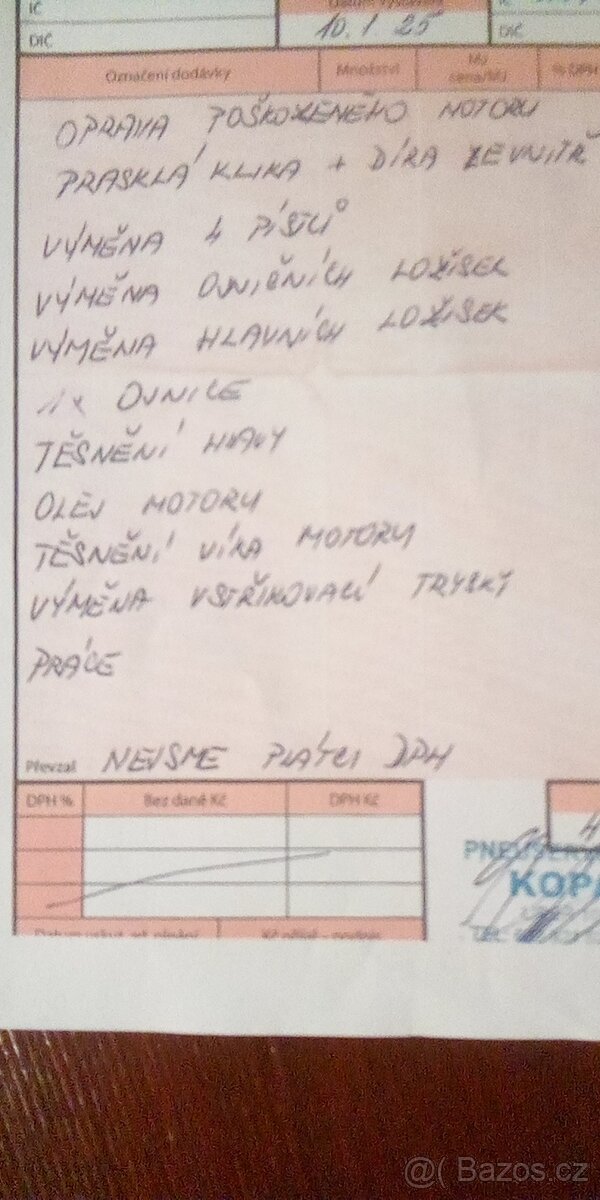 IČ
DIČ
Datum vystavení
10. 1. 25
DIČ
Označení dodávky Množství MJ cena/MJ % DPH
OPRAVA POŠKOZENÉHO MOTORU
PRASKLÁ KLIKA + DÍRA ZEVNITŘ
VÝMĚNA 4 PÍSTŮ
VÝMĚNA OJNIČNÍCH LOŽISEK
VÝMĚNA HLAVNÍCH LOŽISEK
1x OJNICE
TĚSNĚNÍ HLAVY
OLEJ MOTORU
TĚSNĚNÍ VÍKA MOTORU
VÝMĚNA VSTŘIKOVACÍ TRYSKY
PRÁCE
Převzal NEJSME PLÁTCI DPH
DPH % Bez daně Kč DPH Kč
KOPA
@( Bazos.cz